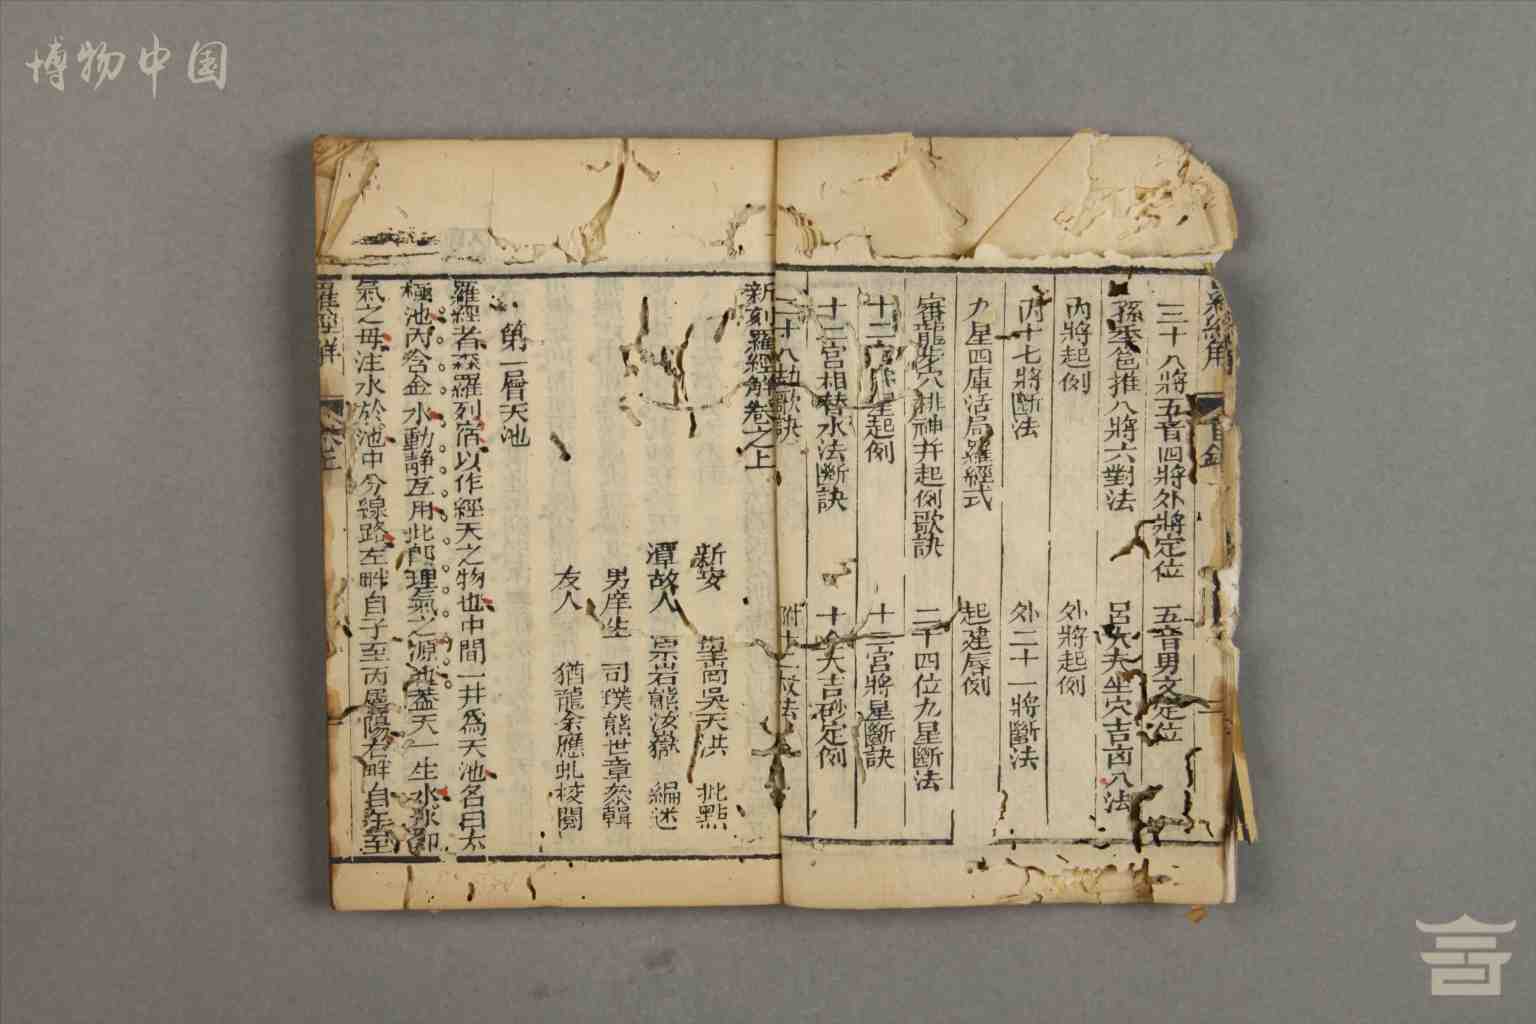 博物中国
三十八將五音四將外將定位 五音男女定位
孫 邕推八將六對法 呂 夫坐穴吉凶八法
內將起例 外將起例
內十七將斷法 外二十一將斷法
九星四庫活局羅經式 起建辰例
審龍坐穴排神并起例歌訣 二十四位九星斷法
十二宮 星起例 十二宮將星斷訣
十二宮相替水法斷訣 十 大吉砂定例
二十八劫歌訣 附 法
新刻羅經解卷之上
新安 吳天洪 批點
潭故人 宗岩熊汝嶽 編述
男庠生 司璞熊世章叅輯
友人 猶龍余應虬校閱
第一層天池
羅經者森羅列宿以作經天之物也中間一井為天池名曰太
極池內含金水動靜互用此即理氣之源 蓋天一生水水即
氣之母注水於池中分線路左畔自子至丙屬陽右畔自午至
羅經解